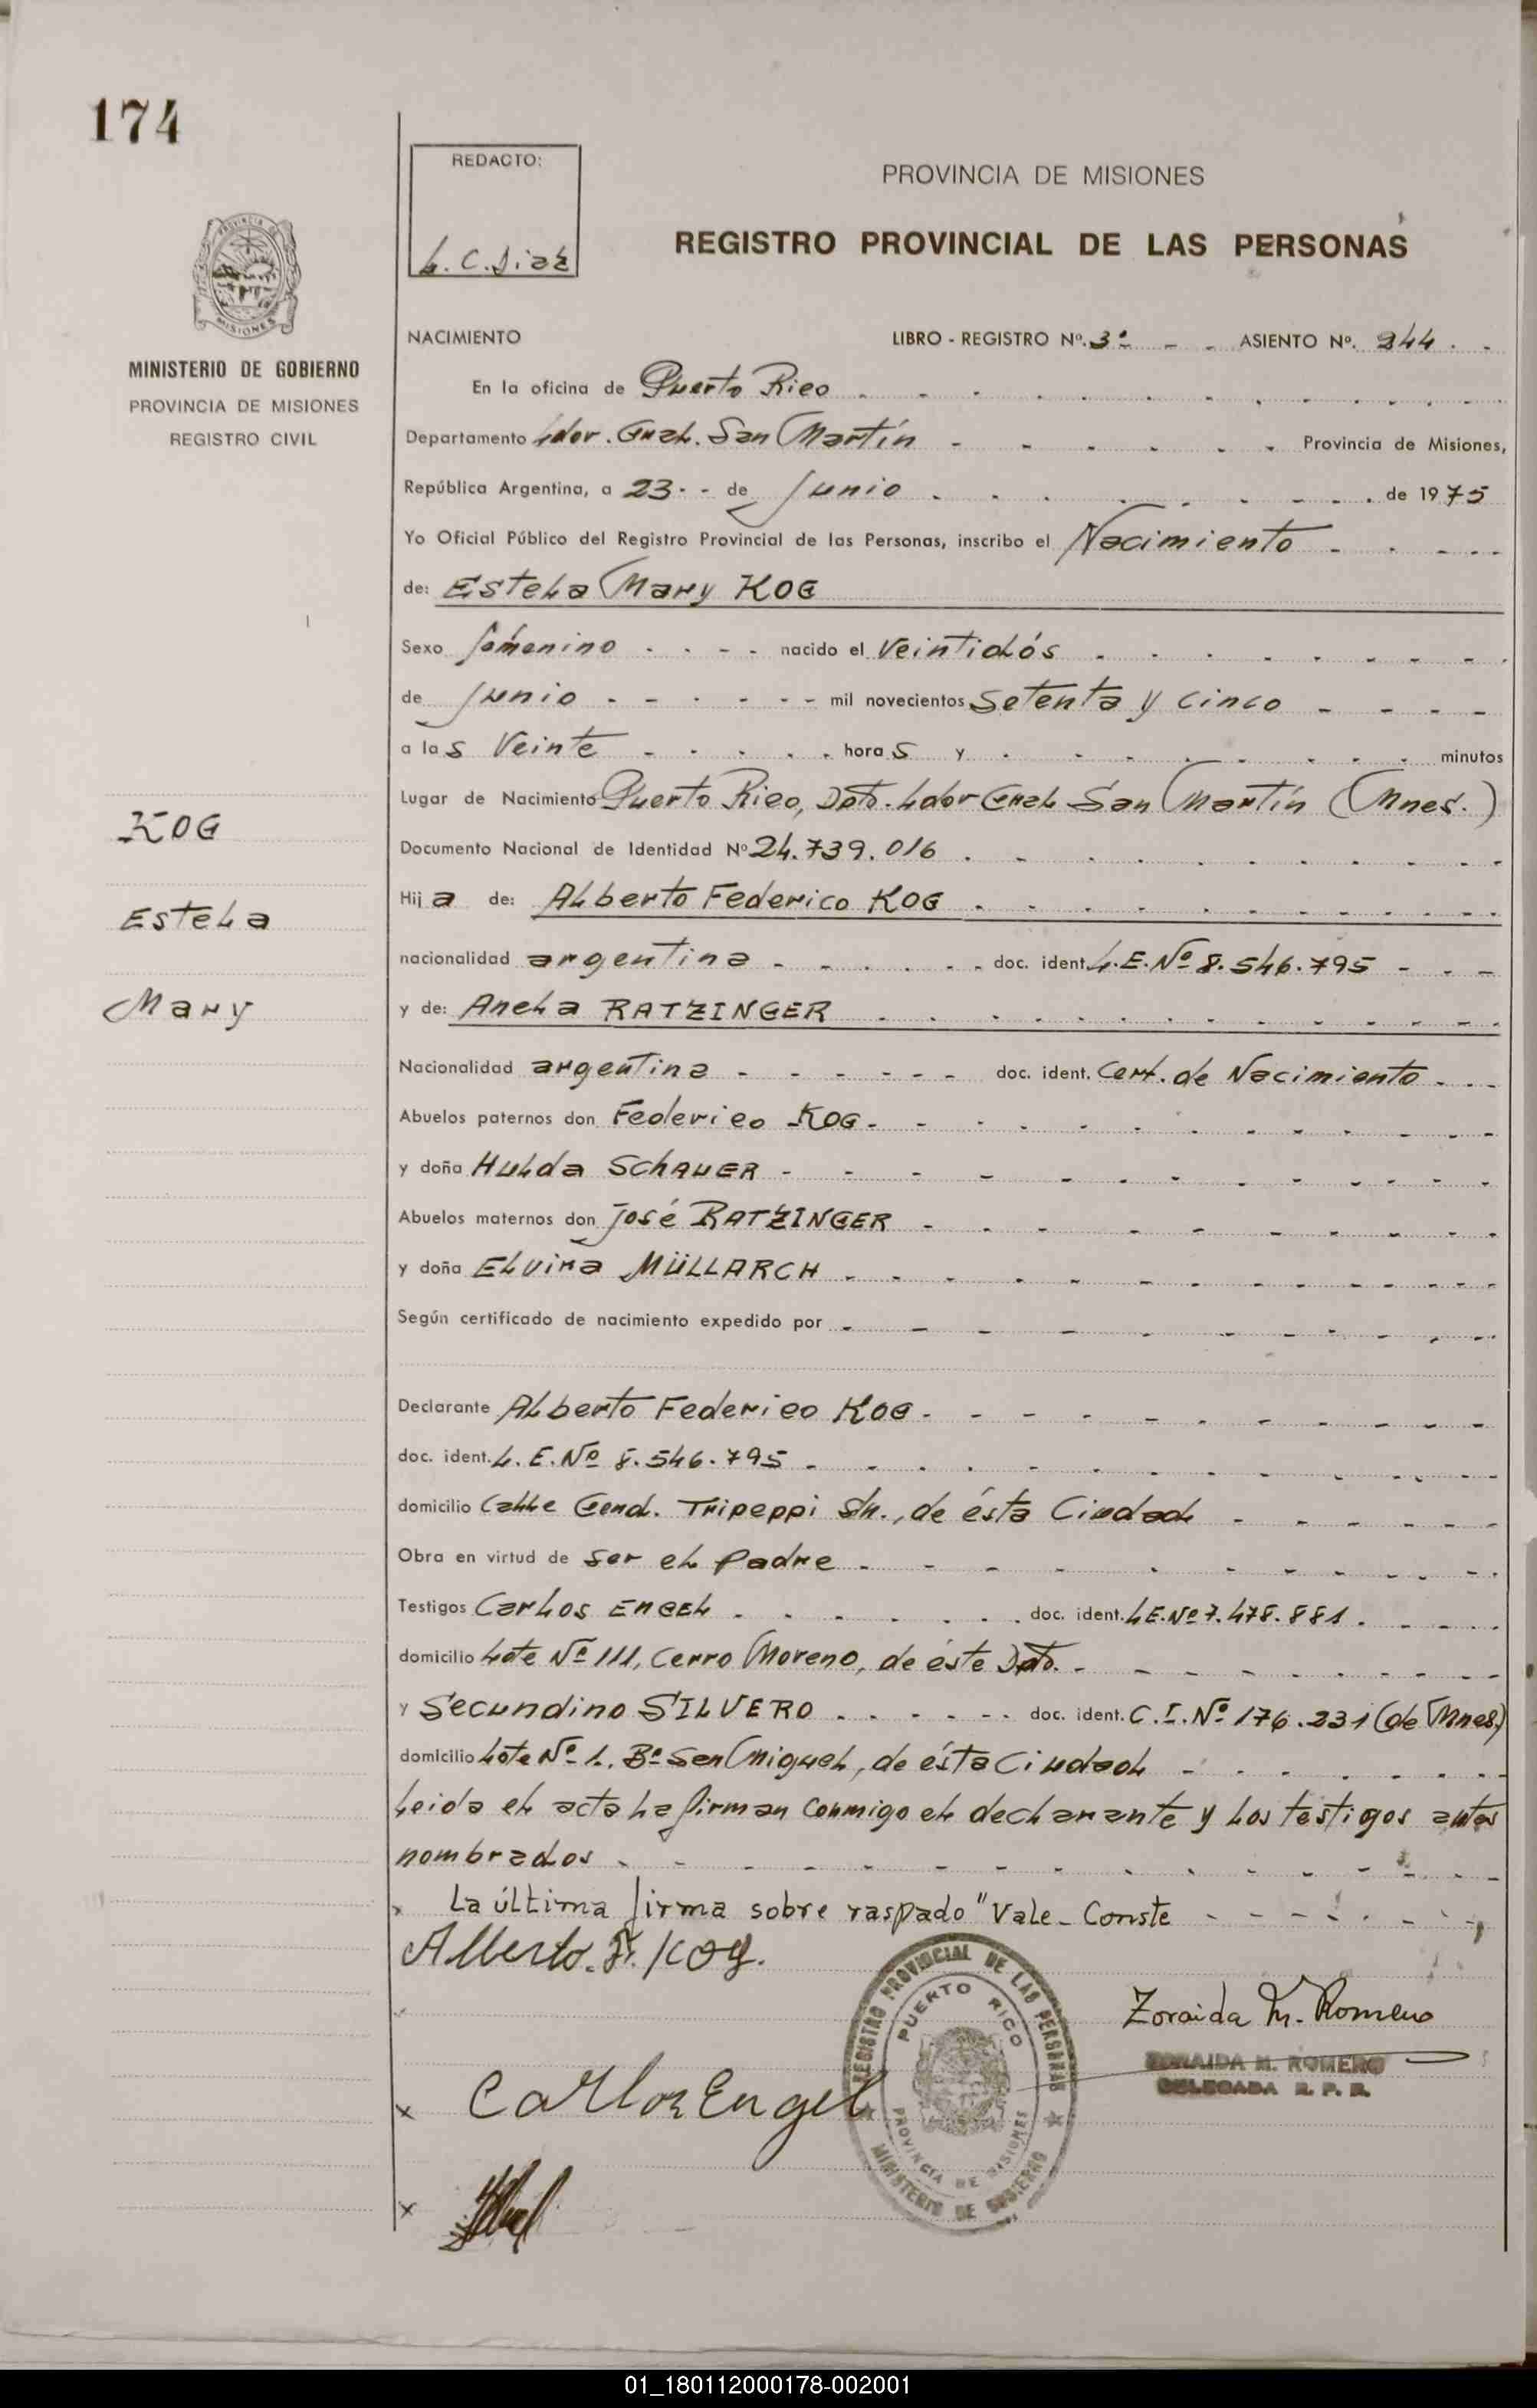 174
REDACTO:
L. C. Diaz
PROVINCIA DE MISIONES
REGISTRO PROVINCIAL DE LAS PERSONAS
PROVINCIA DE
MISIONES
MINISTERIO DE GOBIERNO
PROVINCIA DE MISIONES
REGISTRO CIVIL
NACIMIENTO LIBRO - REGISTRO Nº. 3º - - ASIENTO Nº. 344 . -
En la oficina de Puerto Rico
Departamento Ldor. Gral. San Martín - Provincia de Misiones,
República Argentina, a 23 - - de Junio de 1975
Yo Oficial Público del Registro Provincial de las Personas, inscribo el Nacimiento
de: Estela Mary KOG
Sexo femenino - nacido el veintidós
de Junio - mil novecientos setenta y cinco
a las veinte - horas y - minutos
Lugar de Nacimiento Puerto Rico, Dpto. Ldor Gral San Martín (Mnes.)
Documento Nacional de Identidad Nº 24.739.016
KOG
Estela
Mary
Hija de: Alberto Federico KOG
nacionalidad argentina - doc. ident. L.E. Nº 8.546.795
y de: Anela RATZINGER
Nacionalidad argentina - doc. ident. Cert. de Nacimiento
Abuelos paternos don Federico KOG
y doña Hulda SCHAUER
Abuelos maternos don José RATZINGER
y doña Elvira MÜLLARCH
Según certificado de nacimiento expedido por
Declarante Alberto Federico KOG
doc. ident. L.E. Nº 8.546.795
domicilio Calle Gend. Tripeppi S/n., de ésta Ciudad
Obra en virtud de ser el padre
Testigos Carlos ENGEL doc. ident. L.E. Nº 7.478.881
domicilio Lote Nº 111, Cerro Moreno, de éste Dpto.
y Secundino SILVERO doc. ident. C.I. Nº 176.231 (de Mnes)
domicilio Lote Nº 1. Bº San Miguel, de ésta Ciudad
Leida el acta la firman conmigo el declarante y los testigos antes
nombrados
x La última firma sobre raspado " Vale - Conste
Alberto. F. Kog.
REGISTRO PROVINCIAL DE LAS PERSONAS
PUERTO RICO
PROVINCIA DE MISIONES
MINISTERIO DE GOBIERNO
Zoraida M. Romero
ZORAIDA M. ROMERO
DELEGADA R. P. P.
x Carlos Engel
x
01_180112000178-002001